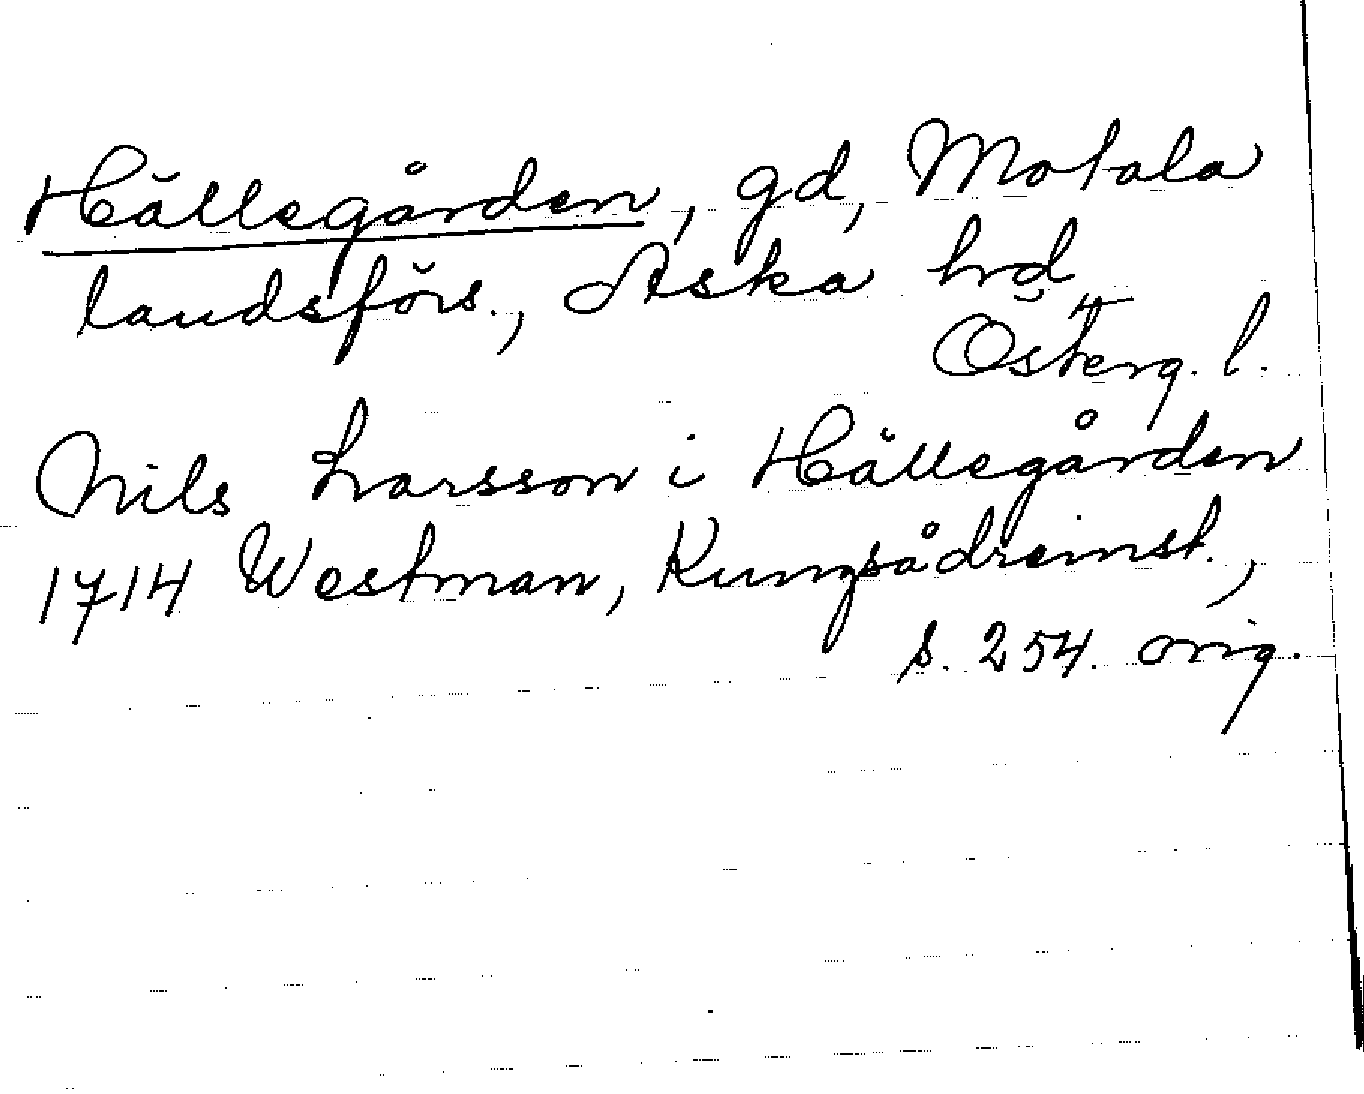 Hällegården, gd, Motala
landsförs., Aska hrd
Österg. l.
Nils Larsson i Hällegården
1714 Westman, Kungsådreinst.,
s. 254. orig.